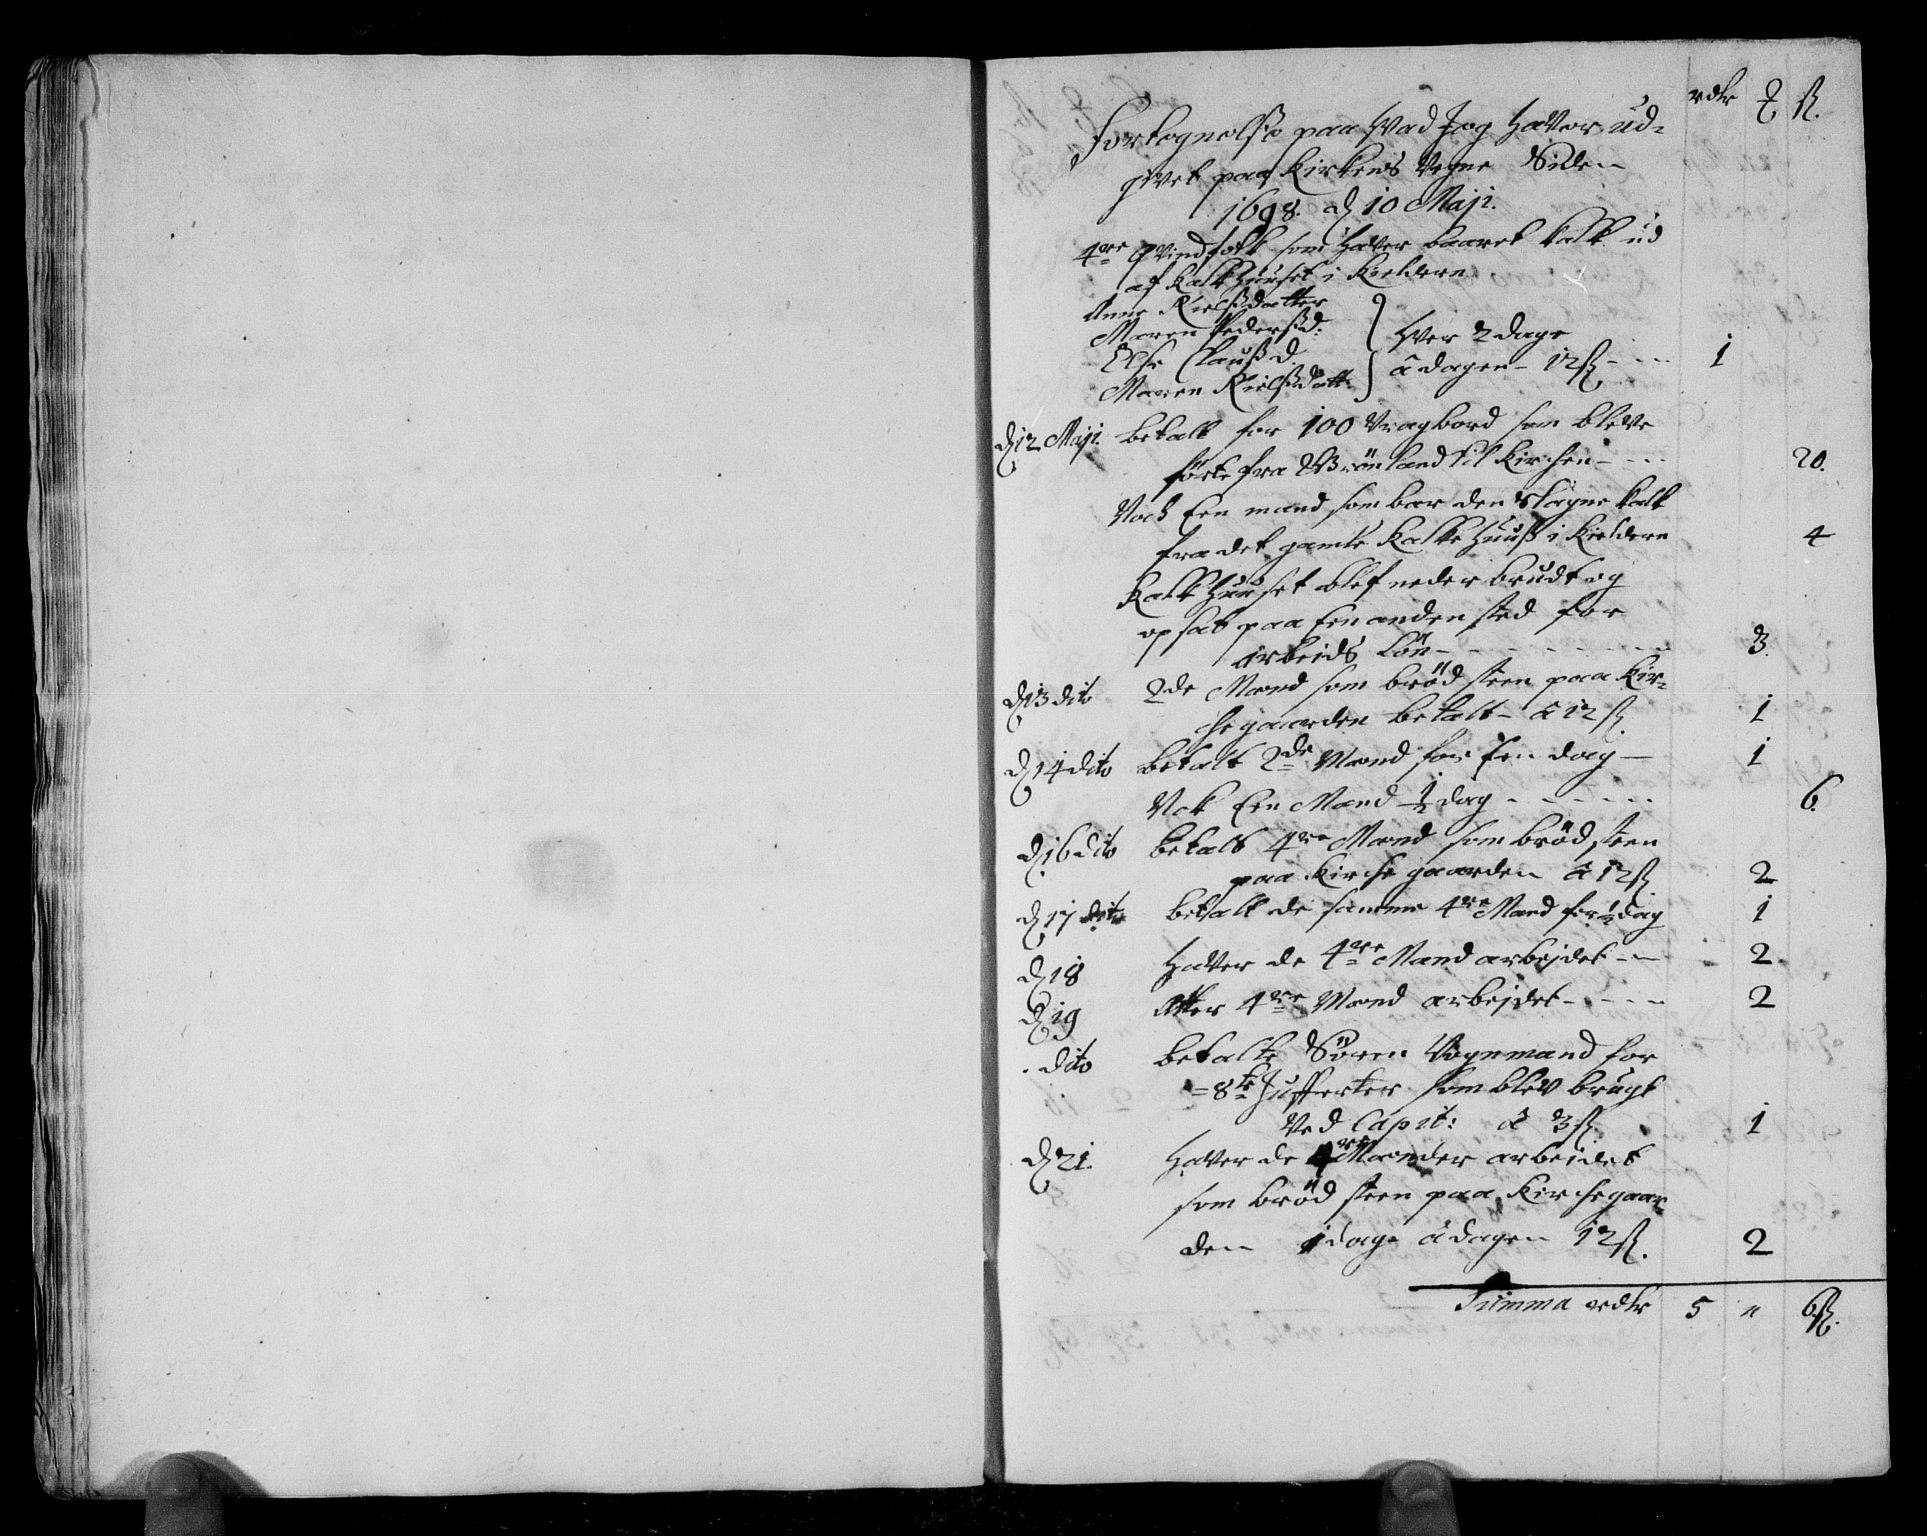 rdlr ℔ ß.
Fortegnelse paa Hvad Jeg Haver ud-
givet paa Kirkens Vegne Siden
1698. d 10 Maji.
4re qvindfolk som Haver baaret kalk ud
af kalkHuuset i Kielderen
Anne Nielsdatter
Maren Pedersd:
Else Clausd
Maren Nielsdatt:
Hver 2 dage
â dagen - 12 ß - - - 1
d 12 Maji. betalt for 100 Vragbord som bleve
förte fra Grönland til Kirchen - - - 20.
Noch Een mand som bar den slagne kalk
fra det gamle Kalke Huuß i Kieldere 4
KalkHuuset blef neder brudt og
opsat paa Een anden sted for
arbeids Lön - - - - - - - - 3.
d 13 dito 2de Mænd som bröd steen paa Kir-
chegaarden betalt - â 12 ß. 1
d 14 dito betalt 2de Mænd for Een dag — 1
Nok Een Mand ½ dag - - - - - 6.
d 16 dito betalt 4re Mænd som bröd steen
paa Kirchegaarden â 12 ß 2
d 17 dito betalt de samme 4re Mænd for ½ dag 1
d 18 Haver de 4re Mænd arbejdet - - 2
d 19 Atter 4re Mænd arbejdet - - - - 2
. dito betalte Sören Vognmand for
- 8te Jufferter som blev brugt
Ved Capit: â 3 ß 1
d 21. Haver de 4re Mænder arbeidet
som bröd steen paa Kirchegaar
den 1 dag â dagen 12 ß. 2
Summa rdlr 5 " 6 ß.